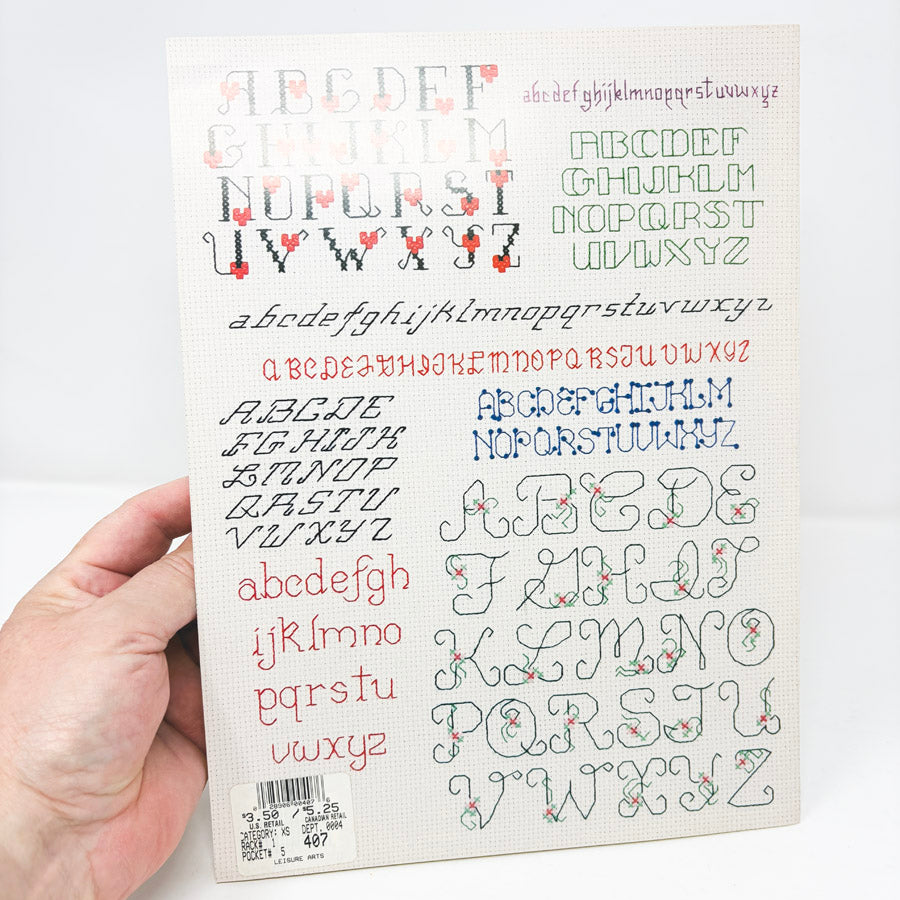 ABCDEF
GHIJKLM
NOPQRST
UVWXYZ
abcdefghijklmnopqrstuvwxyz
ABCDEF
GHIJKLM
NOPQRST
UVWXYZ
abcdefghijklmnopqrstuvwxyz
ABCDEFGHIJKLMNOPQRSTUVWXYZ
ABCDEFGHIJKLM
NOPQRSTUVWXYZ
ABCDE
FGHIJK
LMNOP
QRSTU
VWXYZ
abcdefgh
ijklmno
pqrstu
vwxyz
ABCDE
FGHIJ
KLMNO
PQRSTU
VWXYZ
0 28906 00407 6
$3.50 / $5.25
U.S. RETAIL CANADIAN RETAIL
CATEGORY: XS DEPT. 0004
RACK# 1 407
POCKET# 5
LEISURE ARTS